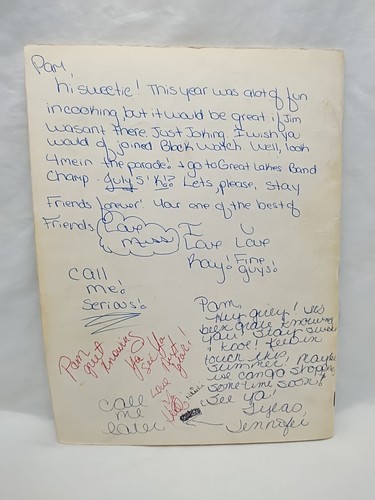 Pam,
hi sweetie! This year was a lot of fun
in cooking but it would be great if Jim
wasant there. Just Joking. I wish ya
would of joined Black watch. Well, look
4 me in the parade! & go to Great Lakes Band
Champ. July 5! K!? Lets, please, stay
Friends forever! Your one of the best of
Friends
Love
I U
Love Love
Kay! Fine
guys!
call
me!
Serious!
Pam,
Hey guey! It's
been great knowing
you! Stay sweet
Keep in
touch this
summer, maybe
we can go shopping
some time soon!
See ya!
Jennifer
Pam
great
knowing
ya
See Ya
next
year!
Love
call
me
later